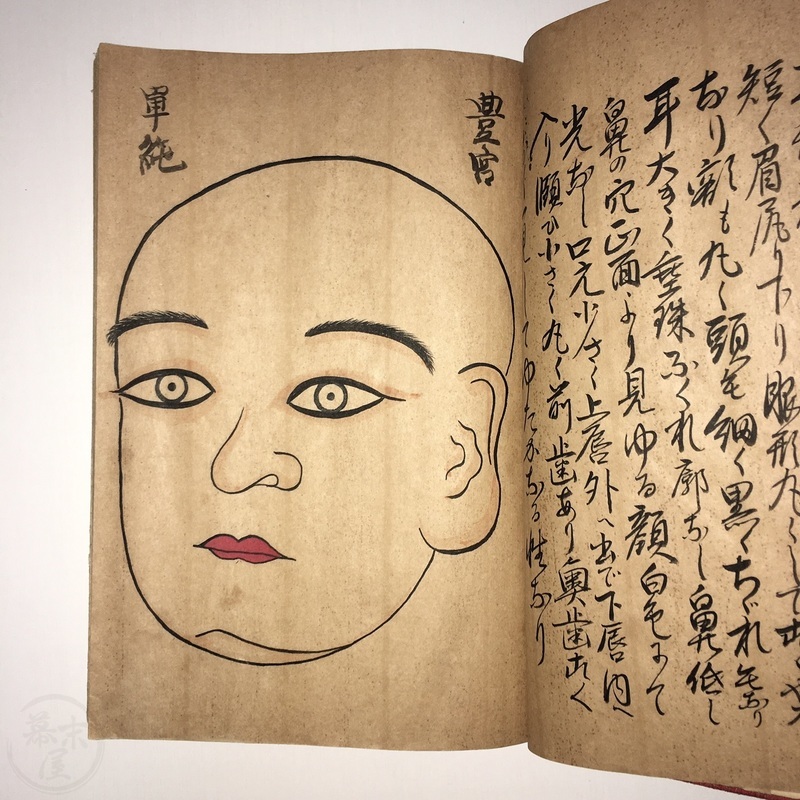 短く眉尻り下り眼形丸くして出
おり額も丸く頭毛細く黒くちゞれ毛なり
耳大きく垂珠ふくれ廓なし鼻低し
鼻の穴正面より見ゆる顔白色にて
光なし口元小さく上唇外へ出で下唇内へ
入り頤ひ小さく丸く前歯あり奥歯なく
てゆたかなる性なり
豊宮
軍純
幕末屋